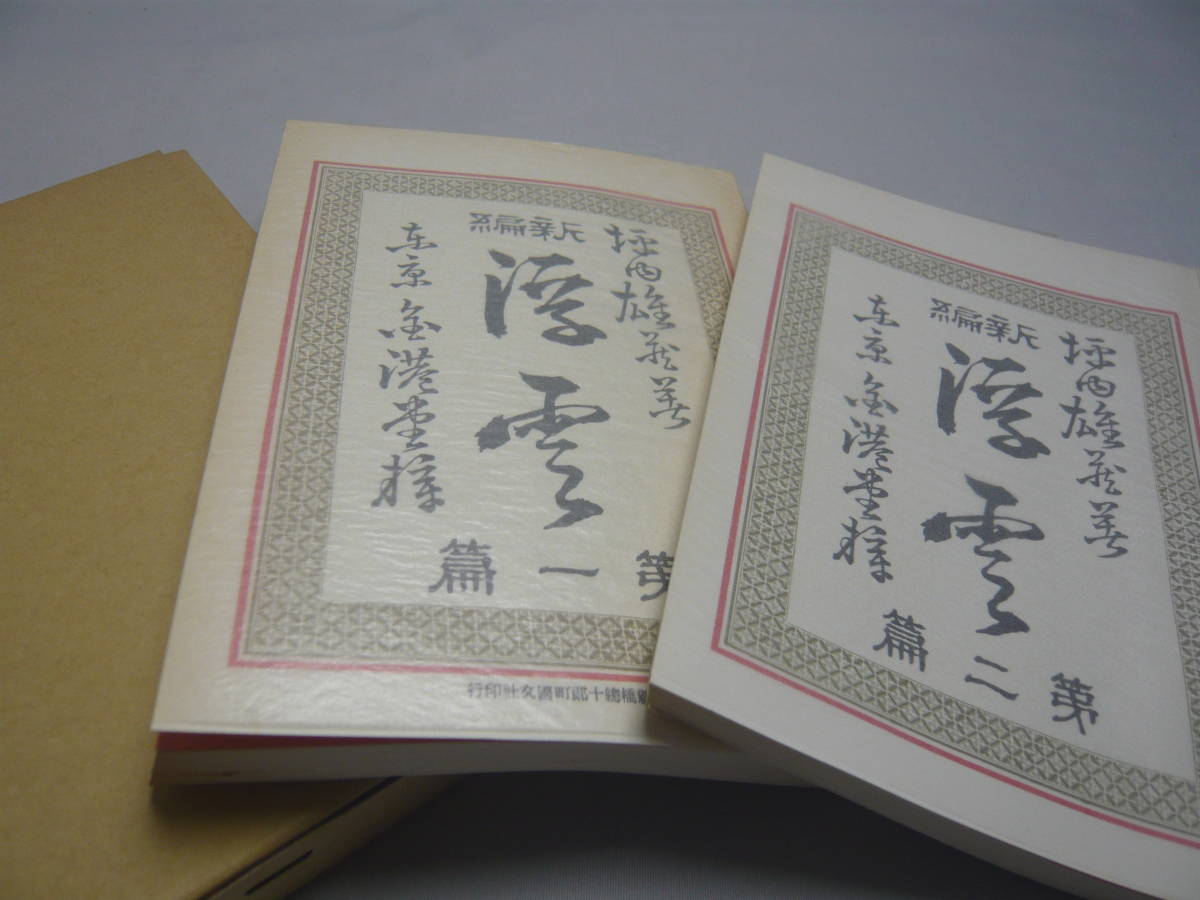 坪内雄蔵著
新編
浮雲
第一篇
東京金港堂梓
橋總十郎町國文社印行
坪内雄蔵著
新編
浮雲
第二篇
東京金港堂梓